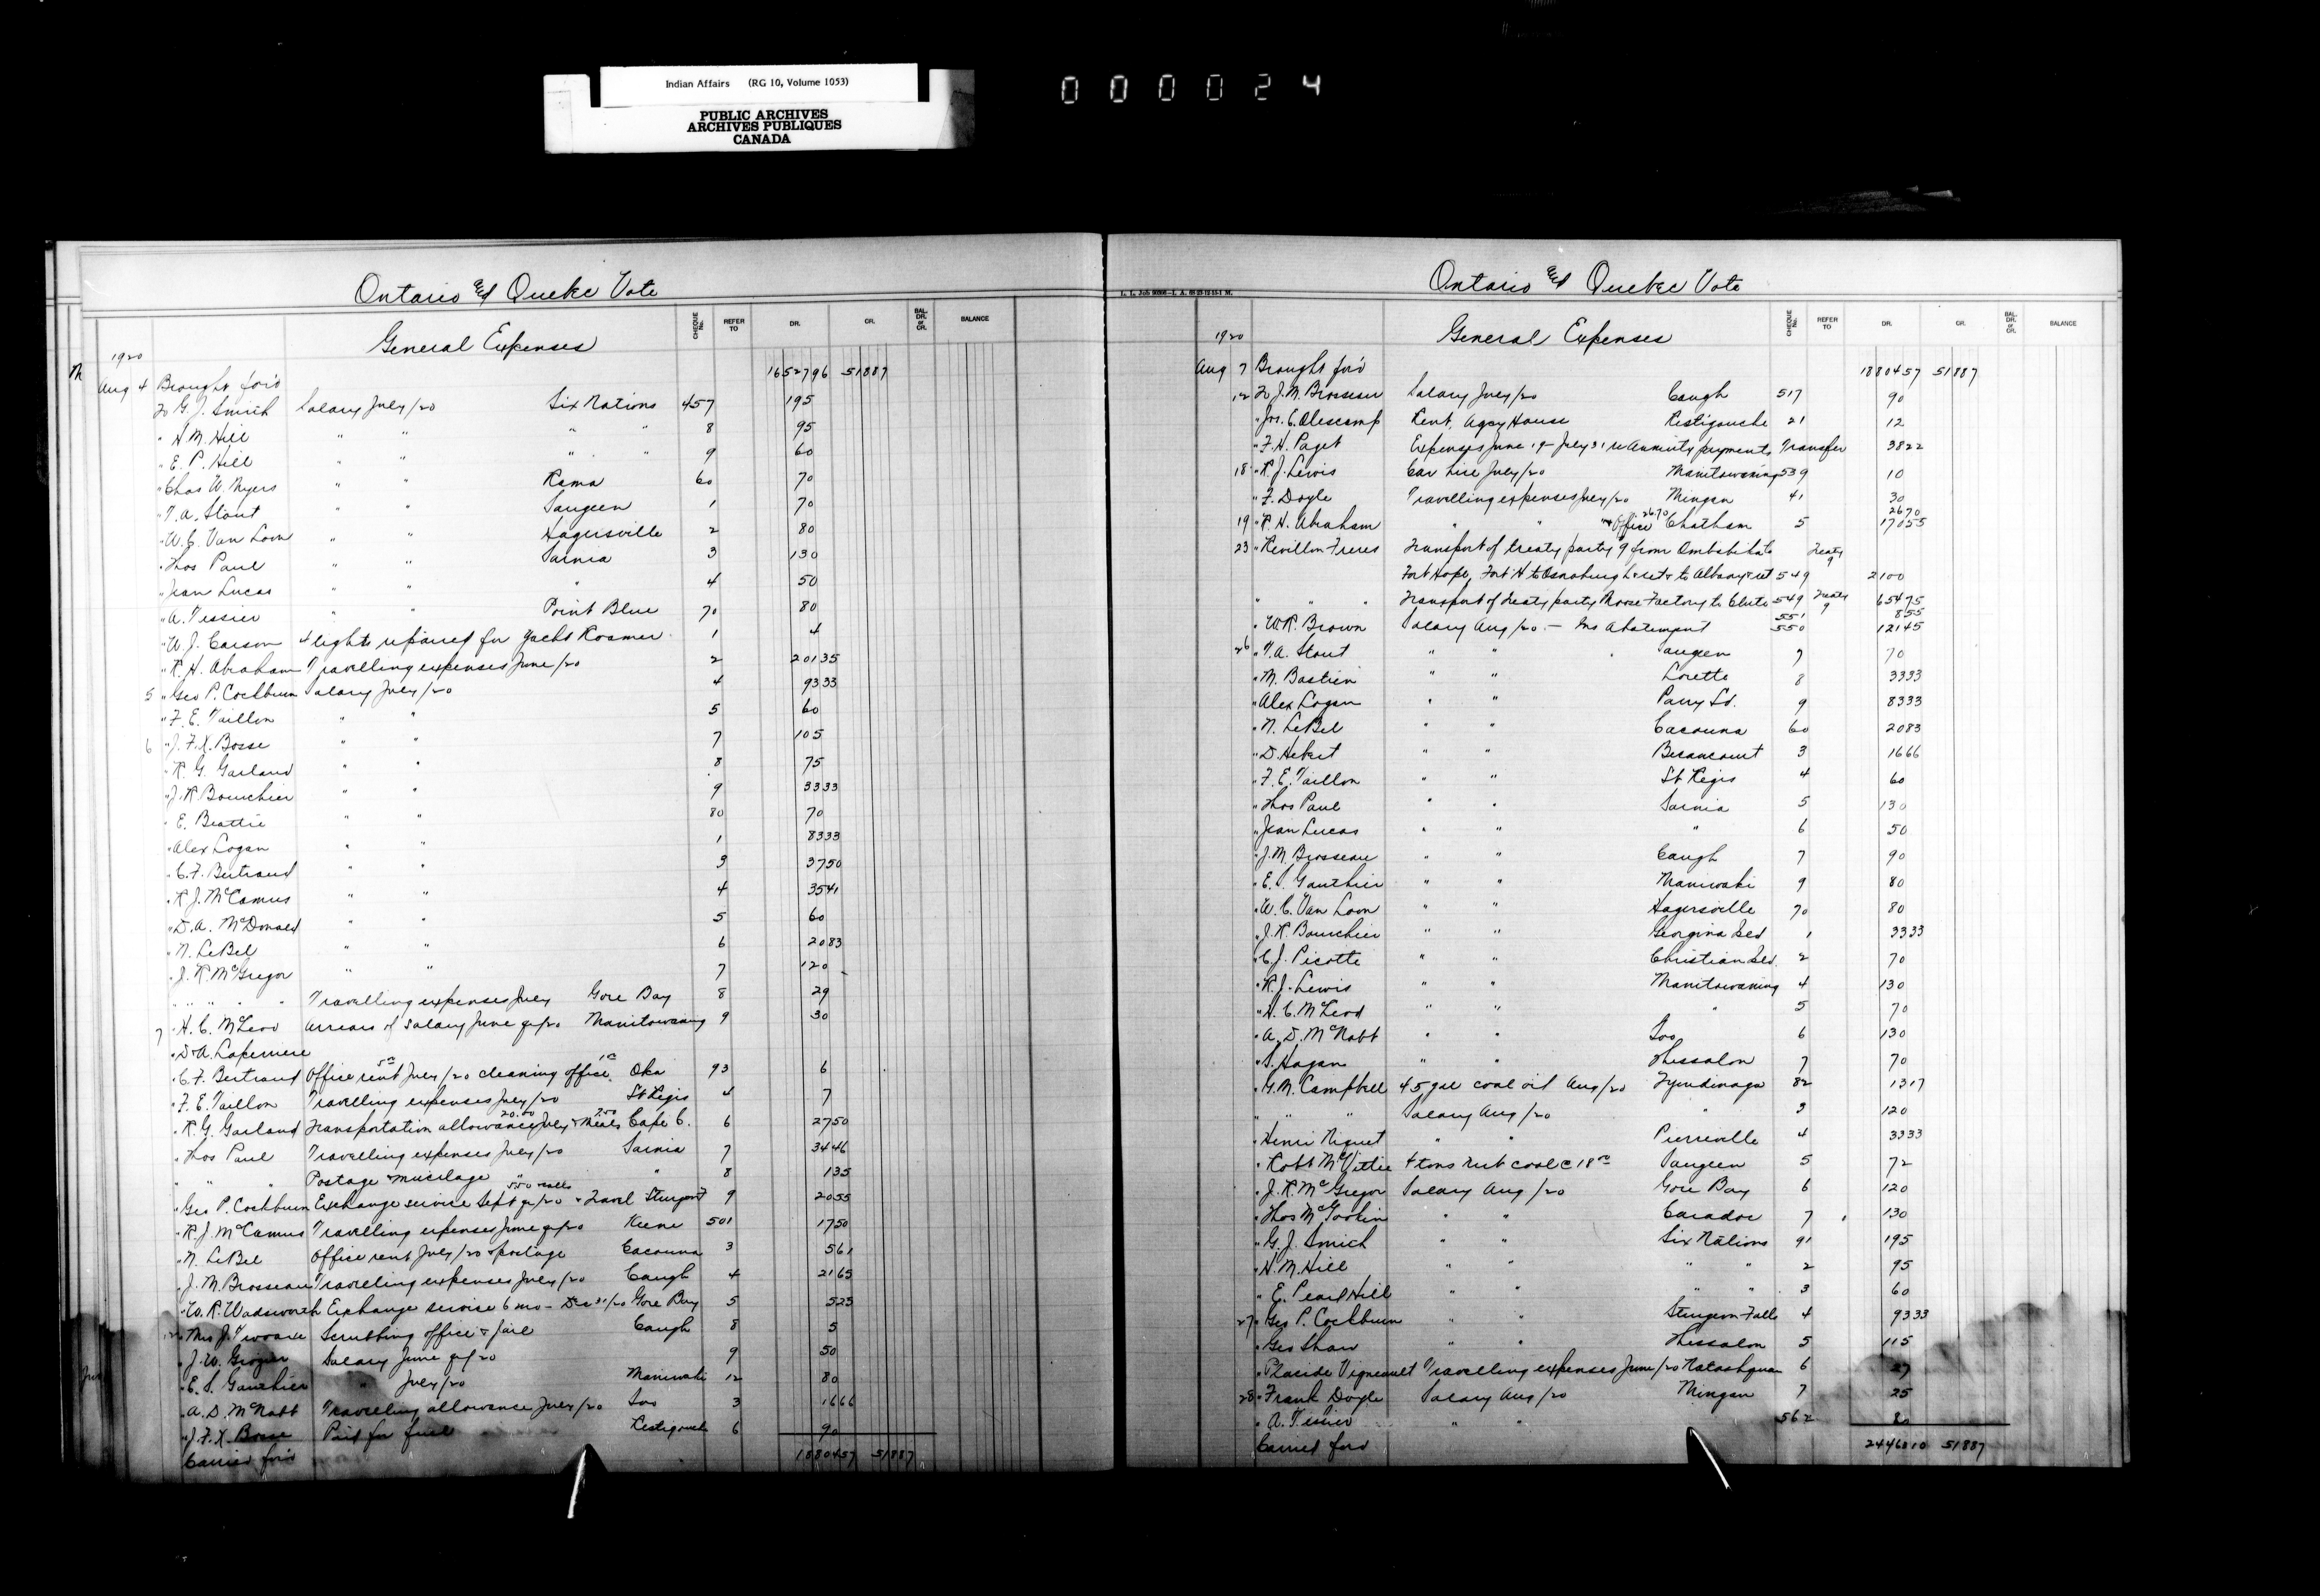 Indian Affairs (RG 10, Volume 1053)
PUBLIC ARCHIVES
ARCHIVES PUBLIQUES
CANADA
000024
Ontario and Quebec Vote
General Expenses
CHEQUE No. REFER TO DR. CR. BAL. DR. or CR. BALANCE
1920
Aug 4 Brought for'd 1652796 51887
To G. J. Smith Salary July/20 Six Nations 457 195
" H. M. Hill " " " " 8 95
" E. P. Hill " " " " 9 60
" Chas W. Myers " " Rama 60 70
" T. A. Stout " " Saugeen 1 70
" W. C. Van Loon " " Hagersville 2 80
" Thos Paul " " Sarnia 3 130
" Jean Lucas " " " 4 50
" A. Tessier " " Point Blue 70 80
" W. J. Carson 4 lights repaired for Yacht Kosmer 1 4
" R. H. Abraham Travelling expenses June/20 2 20135
5 " Geo P. Cockburn Salary July/20 4 9333
" F. E. Taillon " " 5 60
6 " J. F. X. Bosse " " 7 105
" R. G. Garland " " 8 75
" J. R. Bourchier " " 9 3333
" E. Beattie " " 80 70
" Alex Logan " " 1 8333
" C. F. Bertrand " " 3 3750
" R. J. McCamus " " 4 3541
" D. A. McDonald " " 5 60
" N. LeBel " " 6 2083
" J. R. McGregor " " 7 120
" " " " Travelling expenses July Gore Bay 8 29
7 " H. C. McLeod Arrears of Salary June qr/20 Manitowaning 9 30
" D. A. Laperriere
" C. F. Bertrand Office rent 5.00 July/20 cleaning office 1.00 Oka 93 6
" F. E. Taillon Travelling expenses July/20 St Regis 4 7
" R. G. Garland Transportation allowance 20.00 July & Meals 7.50 Cape C. 6 2750
" Thos Paul Travelling expenses July/20 Sarnia 7 3446
" " " Postage & mucilage " 8 135
" Geo P. Cockburn Exchange service Sept qr/20 5.50 & calls & Travel Sturgeon F 9 2055
" R. J. McCamus Travelling expenses June qr/20 Keene 501 1750
" N. LeBel Office rent July/20 & postage Cacouna 3 561
" J. M. Brosseau Travelling expenses July/20 Caugh 4 2165
" W. R. Wadsworth Exchange service 6 mo - Dec 31/20 Gore Bay 5 525
12 " Mrs J. Scrubbing office & jail Caugh 8 5
" J. W. Grozier Salary June qr/20 9 50
" E. S. Gauthier " July/20 Maniwaki 12 80
" A. D. McNabb Travelling allowance July/20 Soo 3 1666
" J. F. X. Bosse Paid for fuel Restigouche 6 90
Carried for'd 1880457 51887
L. L. Job
Ontario and Quebec Vote
General Expenses
CHEQUE No. REFER TO DR. CR. BAL. DR. or CR. BALANCE
1920
Aug 7 Brought for'd 1880457 51887
12 To J. M. Brosseau Salary July/20 Caugh 517 90
" Jos. C. Olescamp Rent, Agcy House Restigouche 21 12
" F. H. Paget Expenses June 19 - July 31 re Annuity payments Transfer 3822
18 " R. J. Lewis Car hire July/20 Manitowaning 539 10
" F. Doyle Travelling expenses July/20 Mingan 41 30
19 " R. H. Abraham " " & Office 26.70 Chatham 5 2670 17055
23 " Revillon Freres Transport of treaty party 9 from Ombabika to Treaty 9
Fort Hope, Fort H to Osnaburgh & ret & to Albany & ret 549 2100
" " " Transport of treaty party Moose Factory to Clute 549 Treaty 9 65475
" W. R. Brown Salary Aug/20 - Ins Abatement 551 550 855 12145
26 " T. A. Stout " " Saugeen 7 70
" M. Bastien " " Lorette 8 3333
" Alex Logan " " Parry Sd. 9 8333
" N. LeBel " " Cacouna 60 2083
" D. Hebert " " Becancourt 3 1666
" F. E. Taillon " " St Regis 4 60
" Thos Paul " " Sarnia 5 130
" Jean Lucas " " " 6 50
" J. M. Brosseau " " Caugh 7 90
" E. S. Gauthier " " Maniwaki 9 80
" W. C. Van Loon " " Hagersville 70 80
" J. R. Bourchier " " Georgina Isld 1 3333
" C. J. Picotte " " Christian Isld. 2 70
" R. J. Lewis " " Manitowaning 4 130
" H. C. McLeod " " " 5 70
" A. D. McNabb " " Soo 6 130
" S. Hagan " " Thessalon 7 70
" G. M. Campbell 45 gal coal oil Aug/20 Tyendinaga 82 1317
" " " Salary Aug/20 " 3 120
" Henri Niquet " " Pierreville 4 3333
" Robt McVittie 4 tons nut coal @ 18.00 Saugeen 5 72
" J. R. McGregor Salary Aug/20 Gore Bay 6 120
" Thos McGookin " " Caradoc 7 130
" G. J. Smith " " Six Nations 91 195
" H. M. Hill " " " " 2 95
" E. Pearl Hill " " 3 60
27 " Geo P. Cockburn " " Sturgeon Falls 4 9333
" Geo Shaw " " Thessalon 5 115
" Placide Vigneault Travelling expenses June/20 Natashquan 6 27
28 " Frank Doyle Salary Aug/20 Mingan 7 25
" A. Tessier " " 562 80
Carried for'd 2446810 51887